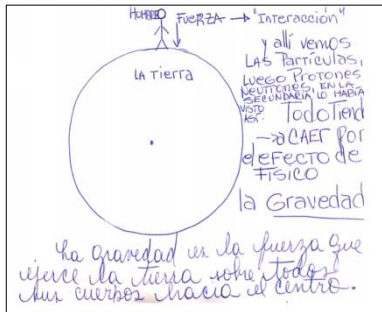 HOMBRE
FUERZA → "Interacción"
LA Tierra
y allí vemos
LAS PARTÍCULAS,
LUEGO PROTONES
NEUTRONES, EN LA
SECUNDARIA LO HABÍA
VISTO
ASÍ.
Todo Tiend
→ CAER POR
defecto de
FÍSICO
la Gravedad
La gravedad es la fuerza que
ejerce la tierra sobre todos
sus cuerpos hacia el centro.